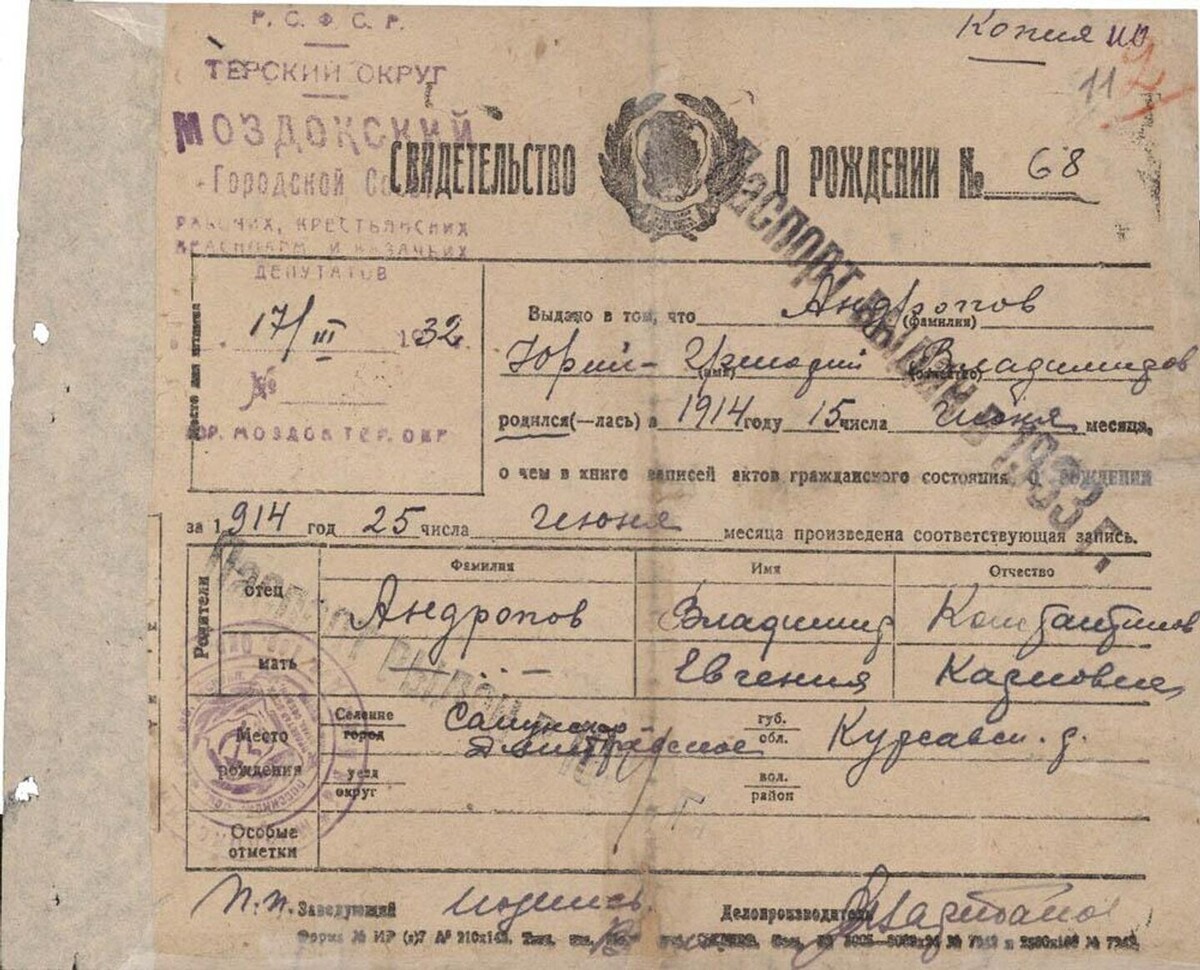 Р. С. Ф. С. Р.
ТЕРСКИЙ ОКРУГ
МОЗДОКСКИЙ
Городской
РАБОЧИХ, КРЕСТЬЯНСКИХ
КРАСНОАРМ. И КАЗАЧЬИХ
ДЕПУТАТОВ
17/III 1932
№
ГОР. МОЗДОК ТЕР. ОКР
Место для штампа
Копия
11
СВИДЕТЕЛЬСТВО О РОЖДЕНИИ № 68
Паспорт выдан в 1933 г.
Выдано в том, что Андропов
(фамилия)
Юрий-Григорий Владимиров
(имя) (отчество)
родился(—лась) в 1914 году 15 числа Июня месяца,
о чем в книге записей актов гражданского состояния о рождении
за 1914 год 25 числа Июня месяца произведена соответствующая запись.
Фамилия Имя Отчество
Родители
отец Андропов Владимир Константинов
мать —"— Евгения Карловна
Паспорт выдан
Место рождения
Селение город губ. обл. Курсавск. р.
уезд округ вол. район
Особые отметки
П.п. Заведующий подпись Делопроизводитель
Форма № ИР (з)7 А⁵ 210х148.